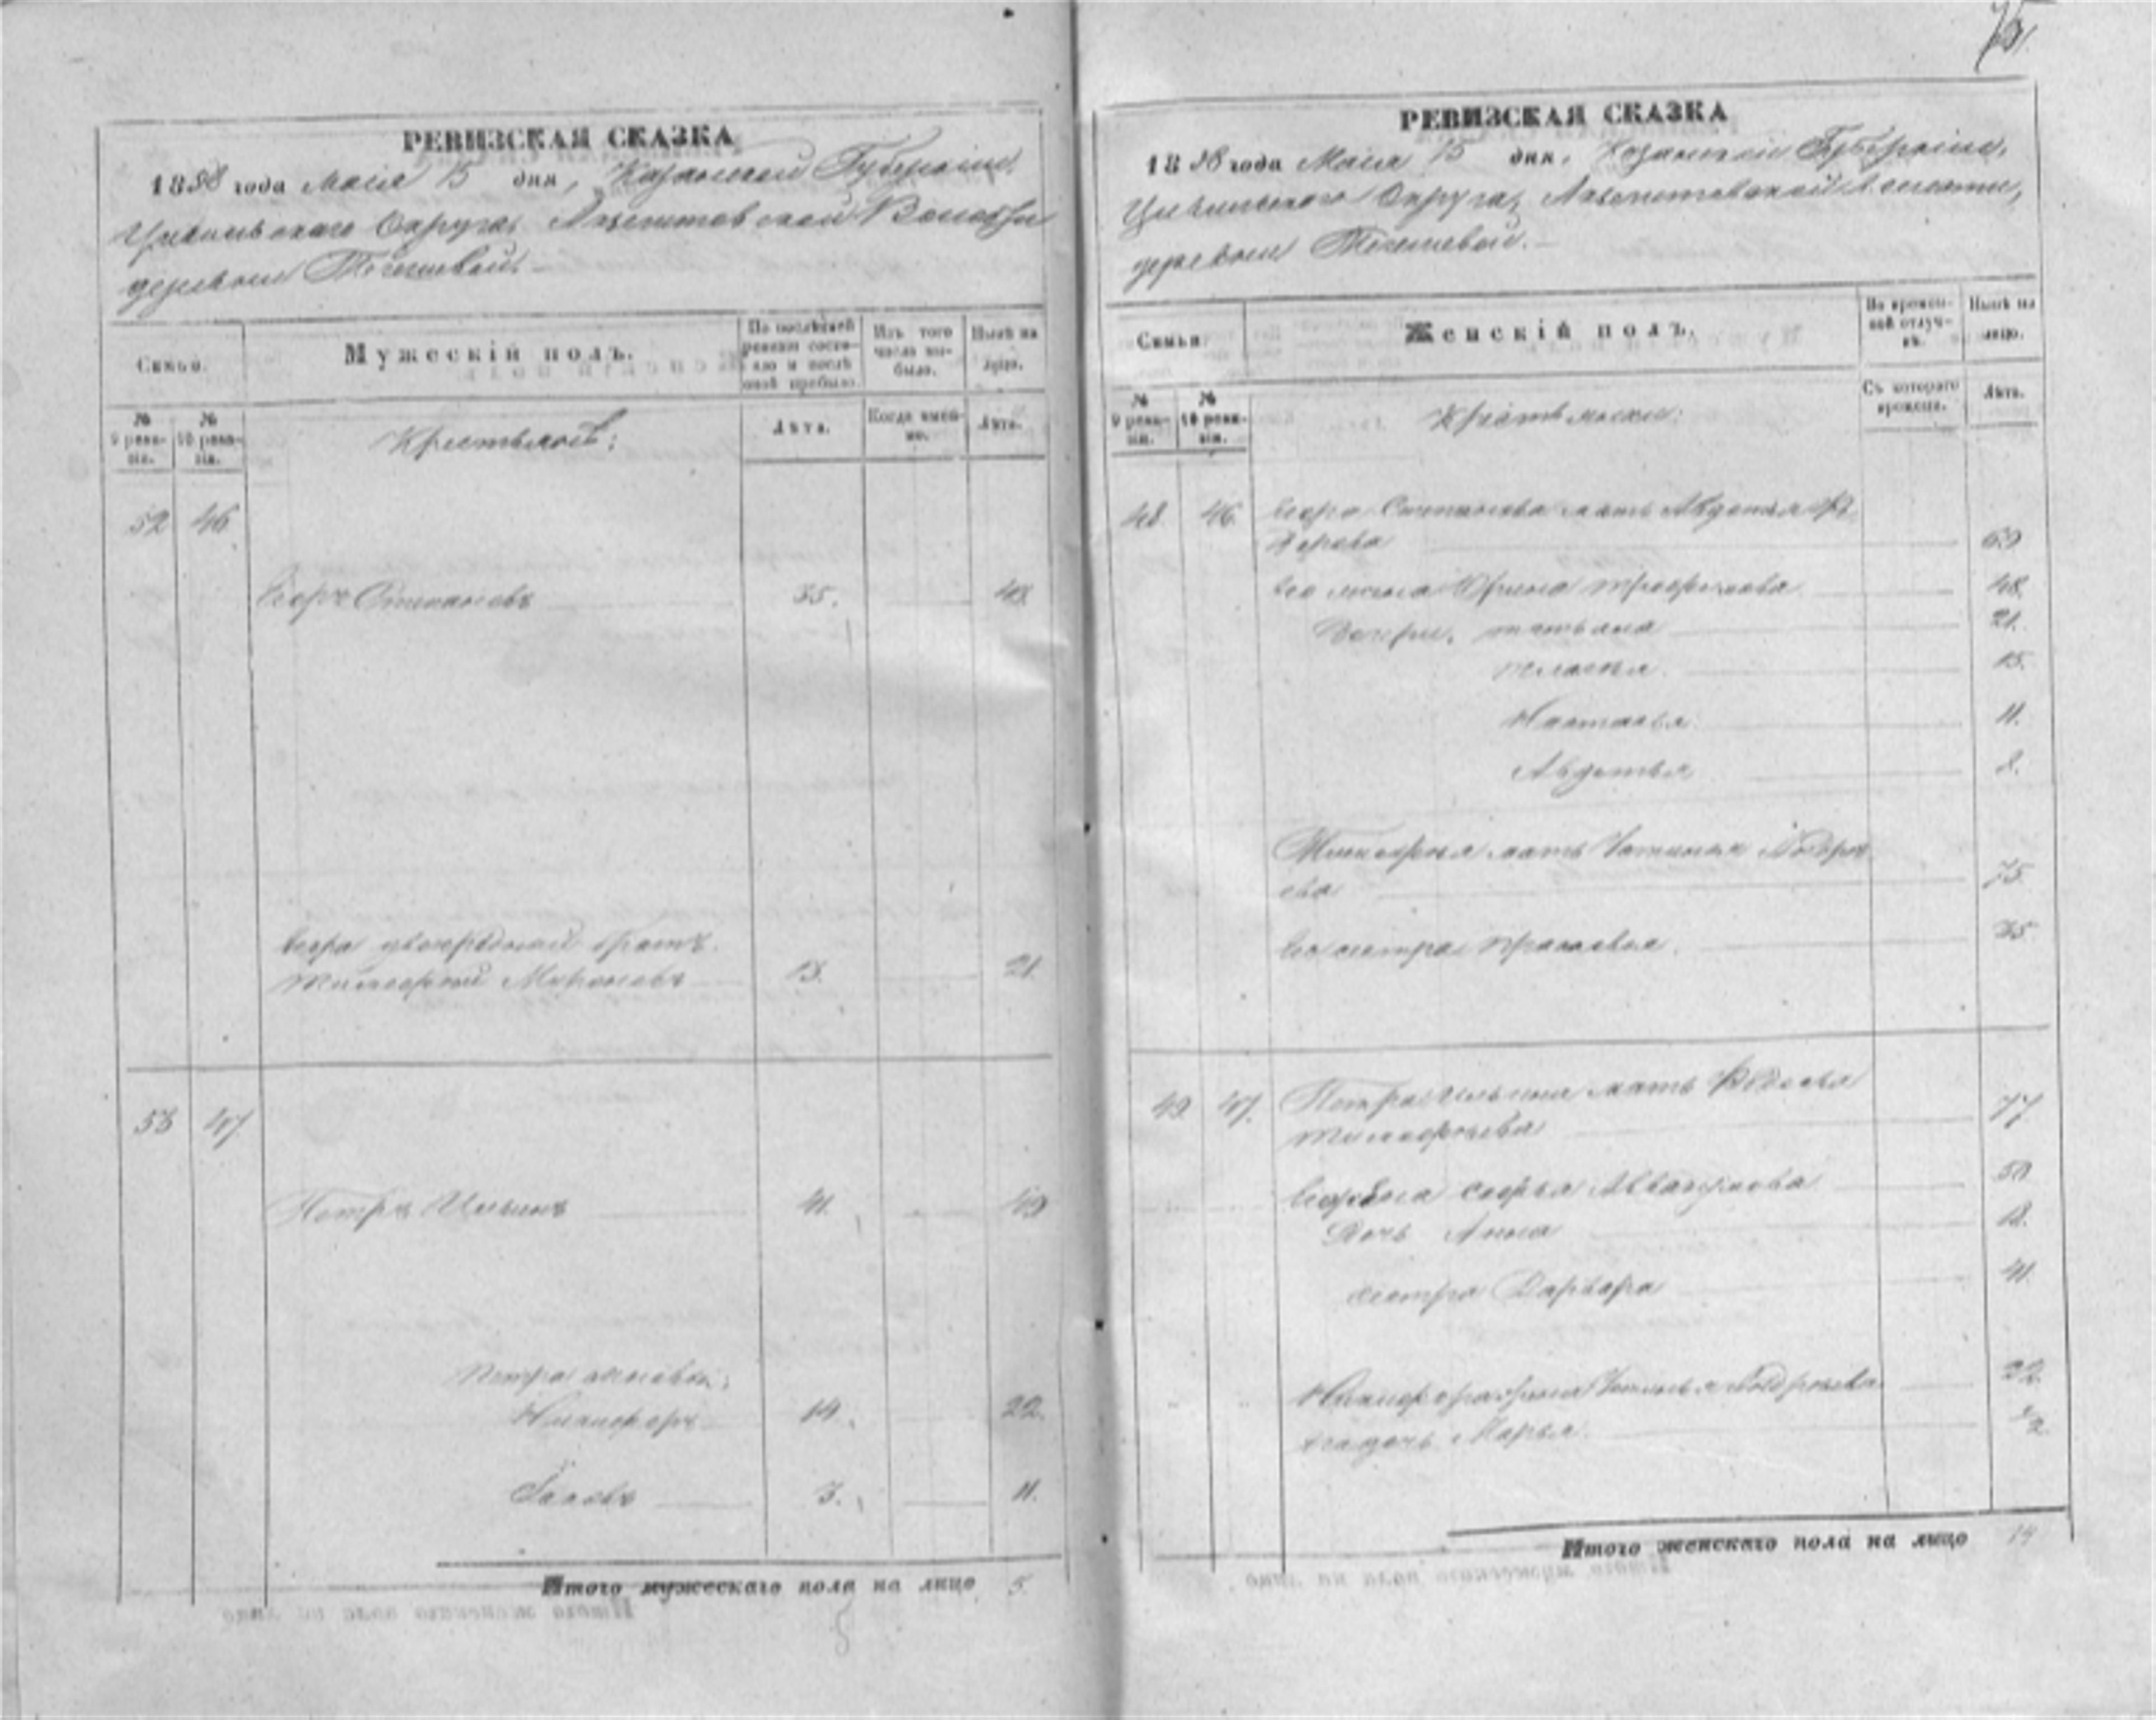 75
РЕВИЗСКАЯ СКАЗКА
1858 года Маія 15 дня, Казанской Губерніи
Цивильскаго Округа, Волости
деревни Тогешевой.
Семьи.
Мужескій полъ.
По послѣдней ревизіи состояло и послѣ оной прибыло.
Изъ того числа выбыло.
Нынѣ на лицо.
№ 9 ревизіи.
№ 10 ревизіи.
Крестьяне:
Лѣта.
Когда именно.
Лѣта.
52 46
Егоръ Степановъ 35. 43
Егора двоюродный братъ
Тимофей Мироновъ 13. 21.
53 47
Петръ Ильинъ 41. 49
Петра сыновья:
Никифоръ 14. 22.
3. 11.
Итого мужескаго пола на лицо 5.
РЕВИЗСКАЯ СКАЗКА
1858 года Маія 15 дня, Казанской Губерніи,
Цивильскаго Округа, Волости,
деревни Тогешевой.
Семьи.
Женскій полъ.
Во временной отлучкѣ.
Нынѣ на лицо.
№ 9 ревизіи.
№ 10 ревизіи.
Крестьянки:
Съ котораго времени.
Лѣта.
48 46 Егора Степанова мать Авдотья Фе
дорова
Его жена Ирина Трофимова 48.
Дочери: Татьяна 21.
15.
Настасья 11.
Авдотья 8.
Тимофея мать
ева 75
Его сестра Прасковья 35
49 47. Петра Ильина мать Федосья
Тимофеева 77
жена Софья Аввакумова 50
Дочь Анна 18.
сестра Варвара 41.
Никифора жена 22.
Его дочь Марья 1/2
Итого женскаго пола на лицо 14